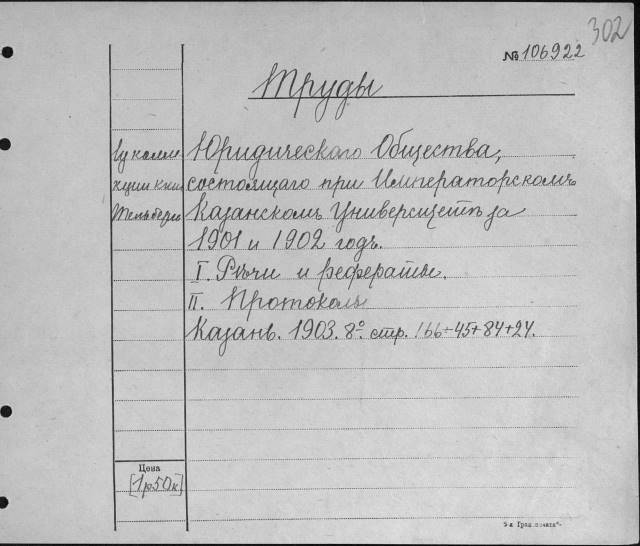 302
№ 106922
Труды
Юридическаго Общества,
состоящаго при Императорскомъ
Казанскомъ Университетѣ за
1901 и 1902 годъ.
I. Рѣчи и рефераты.
II. Протоколы
Казань. 1903. 8º. стр. 166+45+84+24.
Цена
[1р50к]